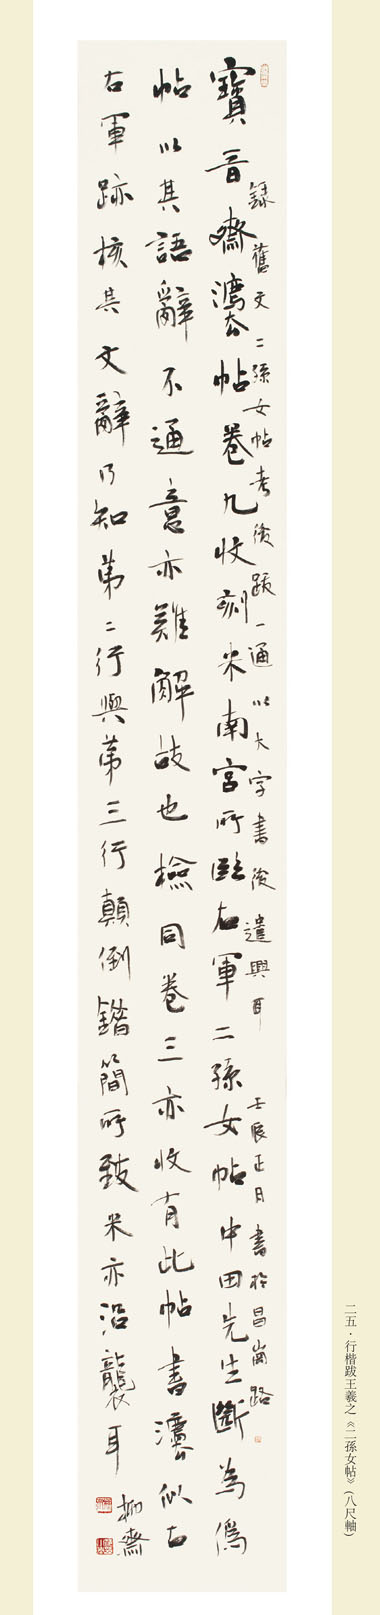 錄舊文二孫女帖考後跋一通以大字書後遣興耳 壬辰正月書於昌崗路
寶晉齋灋帖卷九收刻米南宮所臨右軍二孫女帖中田先生斷為偽
帖以其語辭不通意亦難解故也檢同卷三亦收有此帖書灋似
右軍跡核其文辭乃知第二行與第三行顛倒錯簡所致米亦沿襲耳
柳齋
二五·行楷跋王羲之《二孫女帖》(八尺軸)